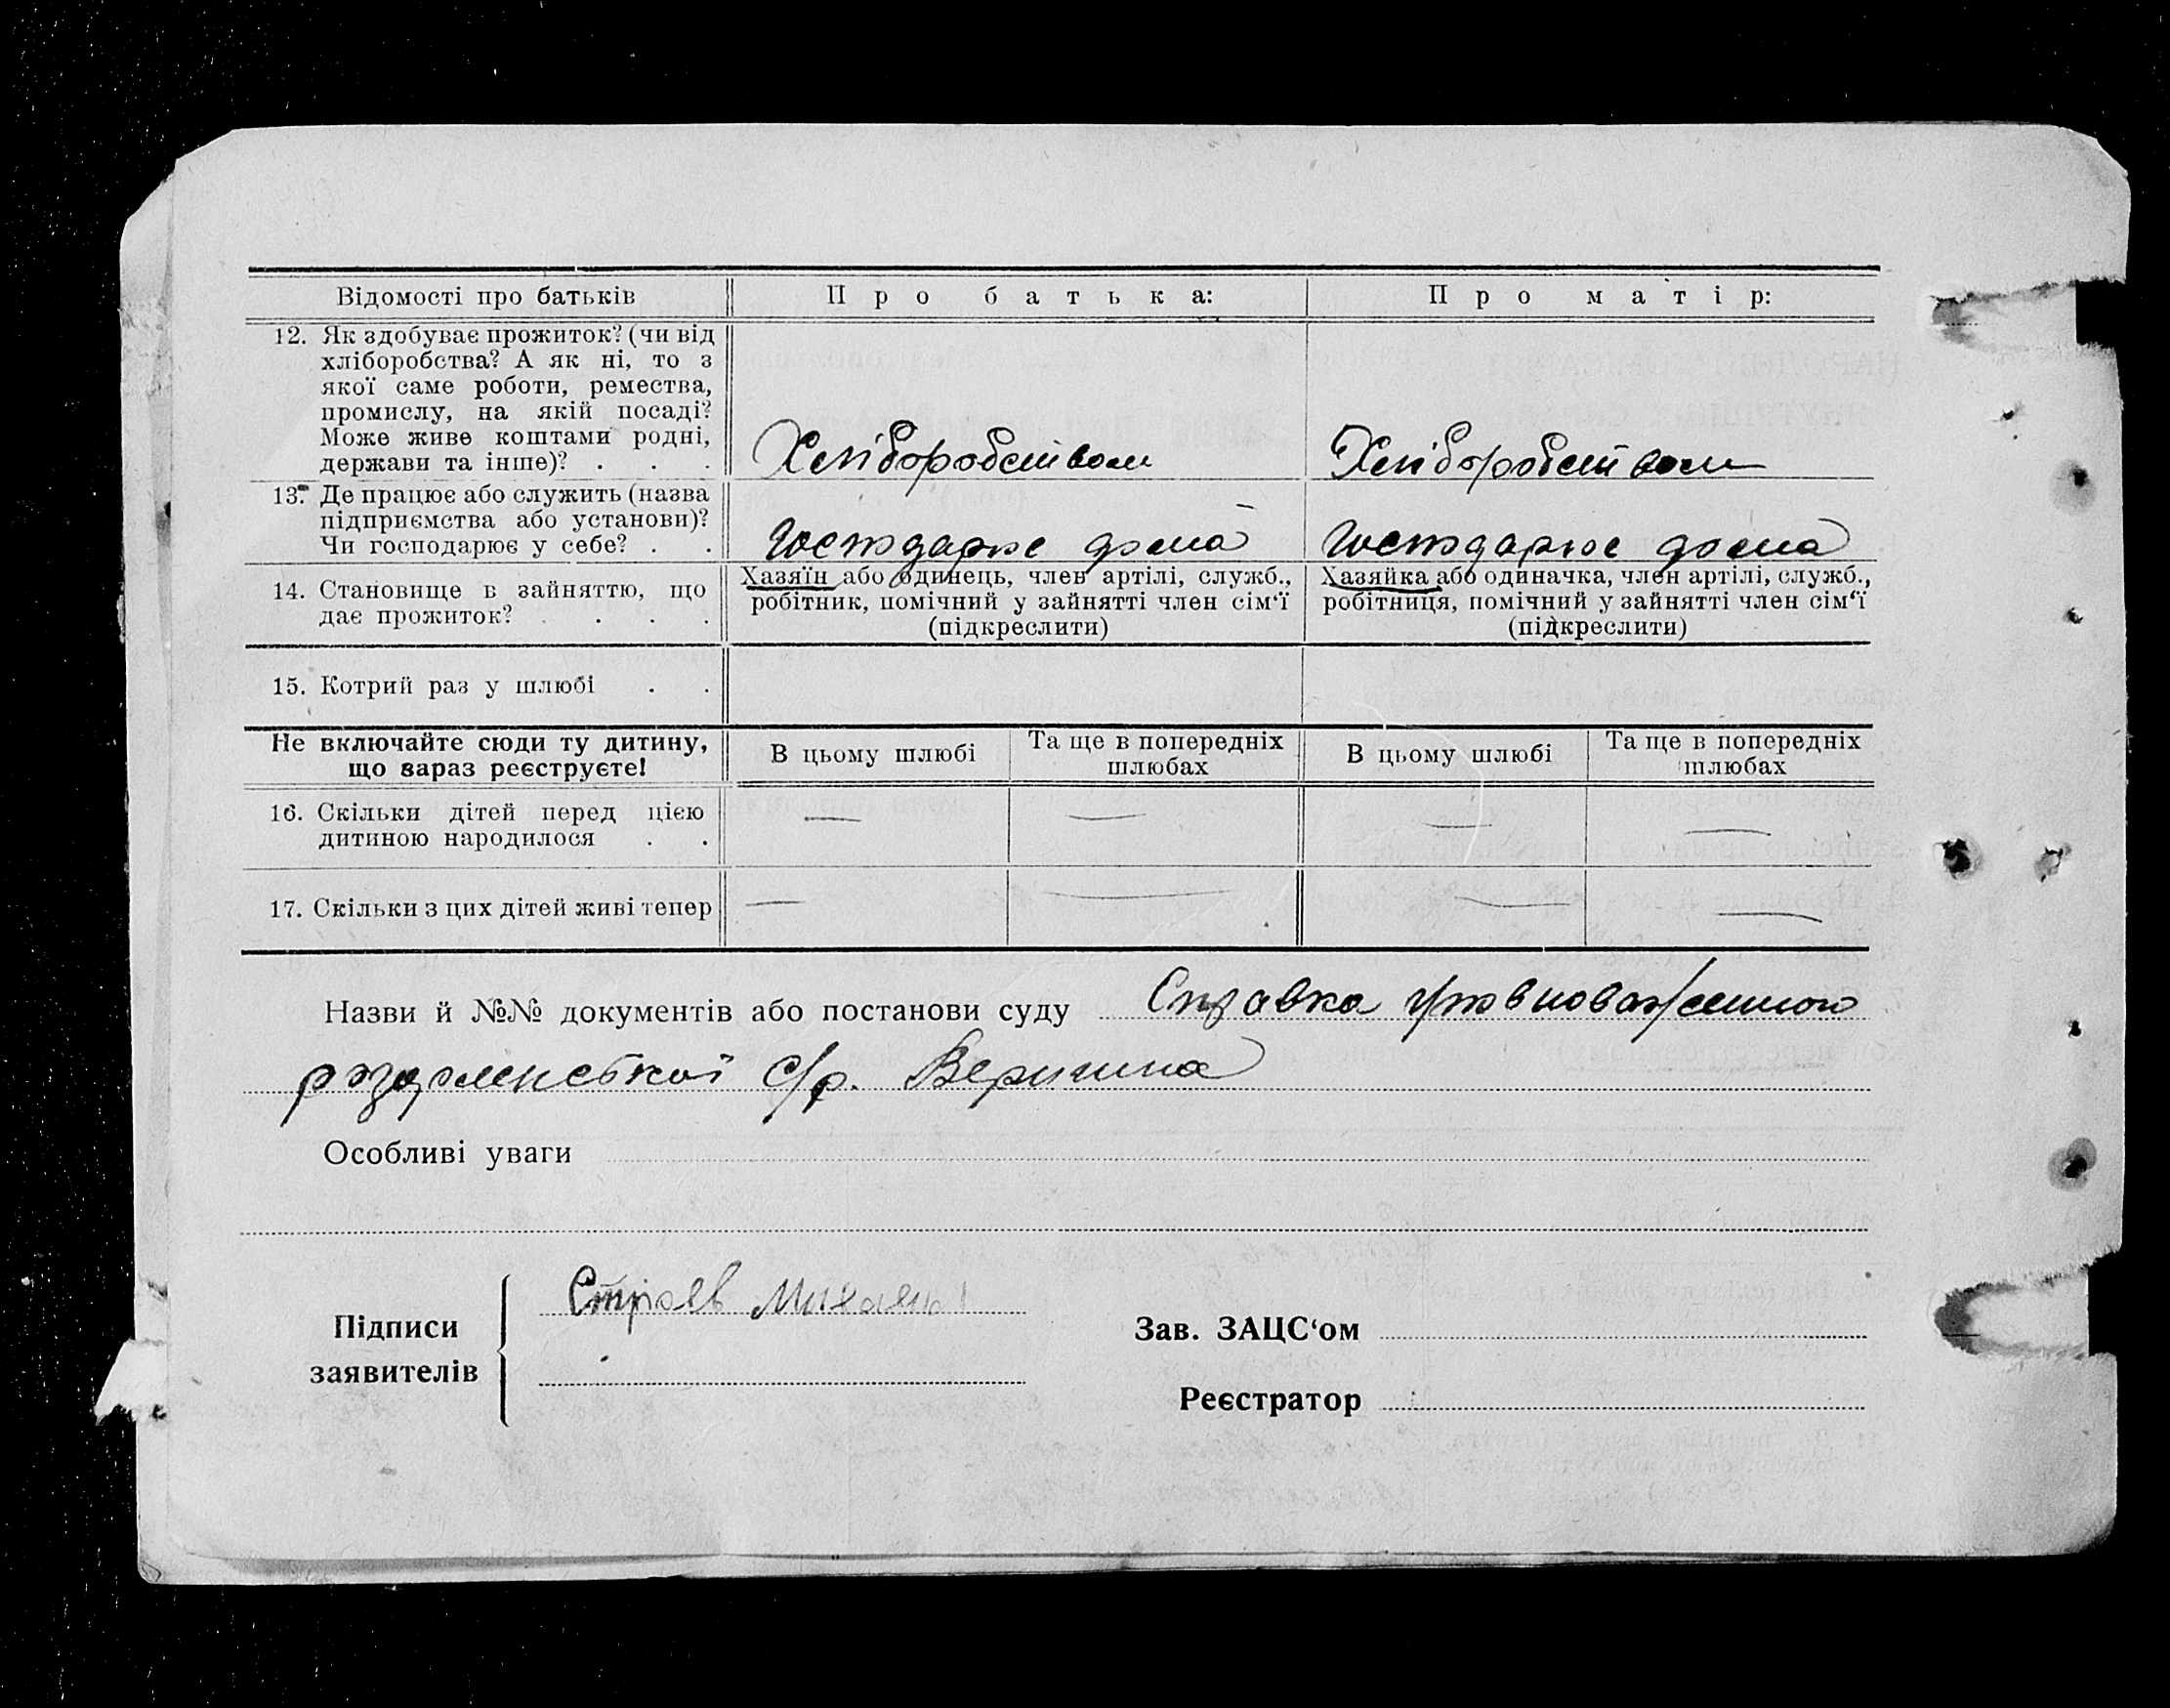 Відомості про батьків
Про батька:
Про матір:
12. Як здобуває прожиток? (чи від
хліборобства? А як ні, то з
якої саме роботи, ремества,
промислу, на якій посаді?
Може живе коштами родні,
держави та інше)? . . .
Хліборобством
Хліборобством
13. Де працює або служить (назва
підприємства або установи)?
Чи господарює у себе? . .
Господарює дома
Господарює дома
14. Становище в зайняттю, що
дає прожиток? . . . .
Хазяїн або одинець, член артілі, служб.,
робітник, помічний у зайнятті член сім‘ї
(підкреслити)
Хазяйка або одиначка, член артілі, служб.,
робітниця, помічний у зайнятті член сім‘ї
(підкреслити)
15. Котрий раз у шлюбі . .
Не включайте сюди ту дитину,
що зараз реєструєте!
В цьому шлюбі
Та ще в попередніх
шлюбах
В цьому шлюбі
Та ще в попередніх
шлюбах
16. Скільки дітей перед цією
дитиною народилося . .
— — — —
17. Скільки з цих дітей живі тепер
— — — —
Назви й №№ документів або постанови суду Справка уповноваженного
с/р.
Особливі уваги
Підписи
заявителів
Зав. ЗАЦС‘ом
Реєстратор